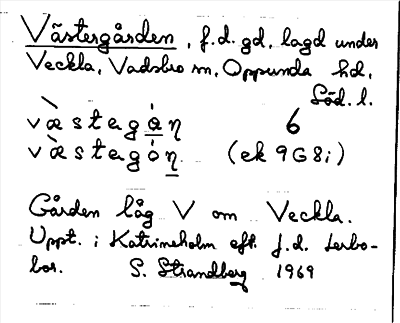 Västergården, f.d. gd, lagd under
Veckla, Vadsbro sn, Oppunda hd,
Söd. l.
væ̀stagán 6
væ̀stagón (ek 9G8i)
Gården låg V om Veckla.
Uppt. i Katrineholm eft. f.d. Lerbo-
bor. S. Strandberg 1969